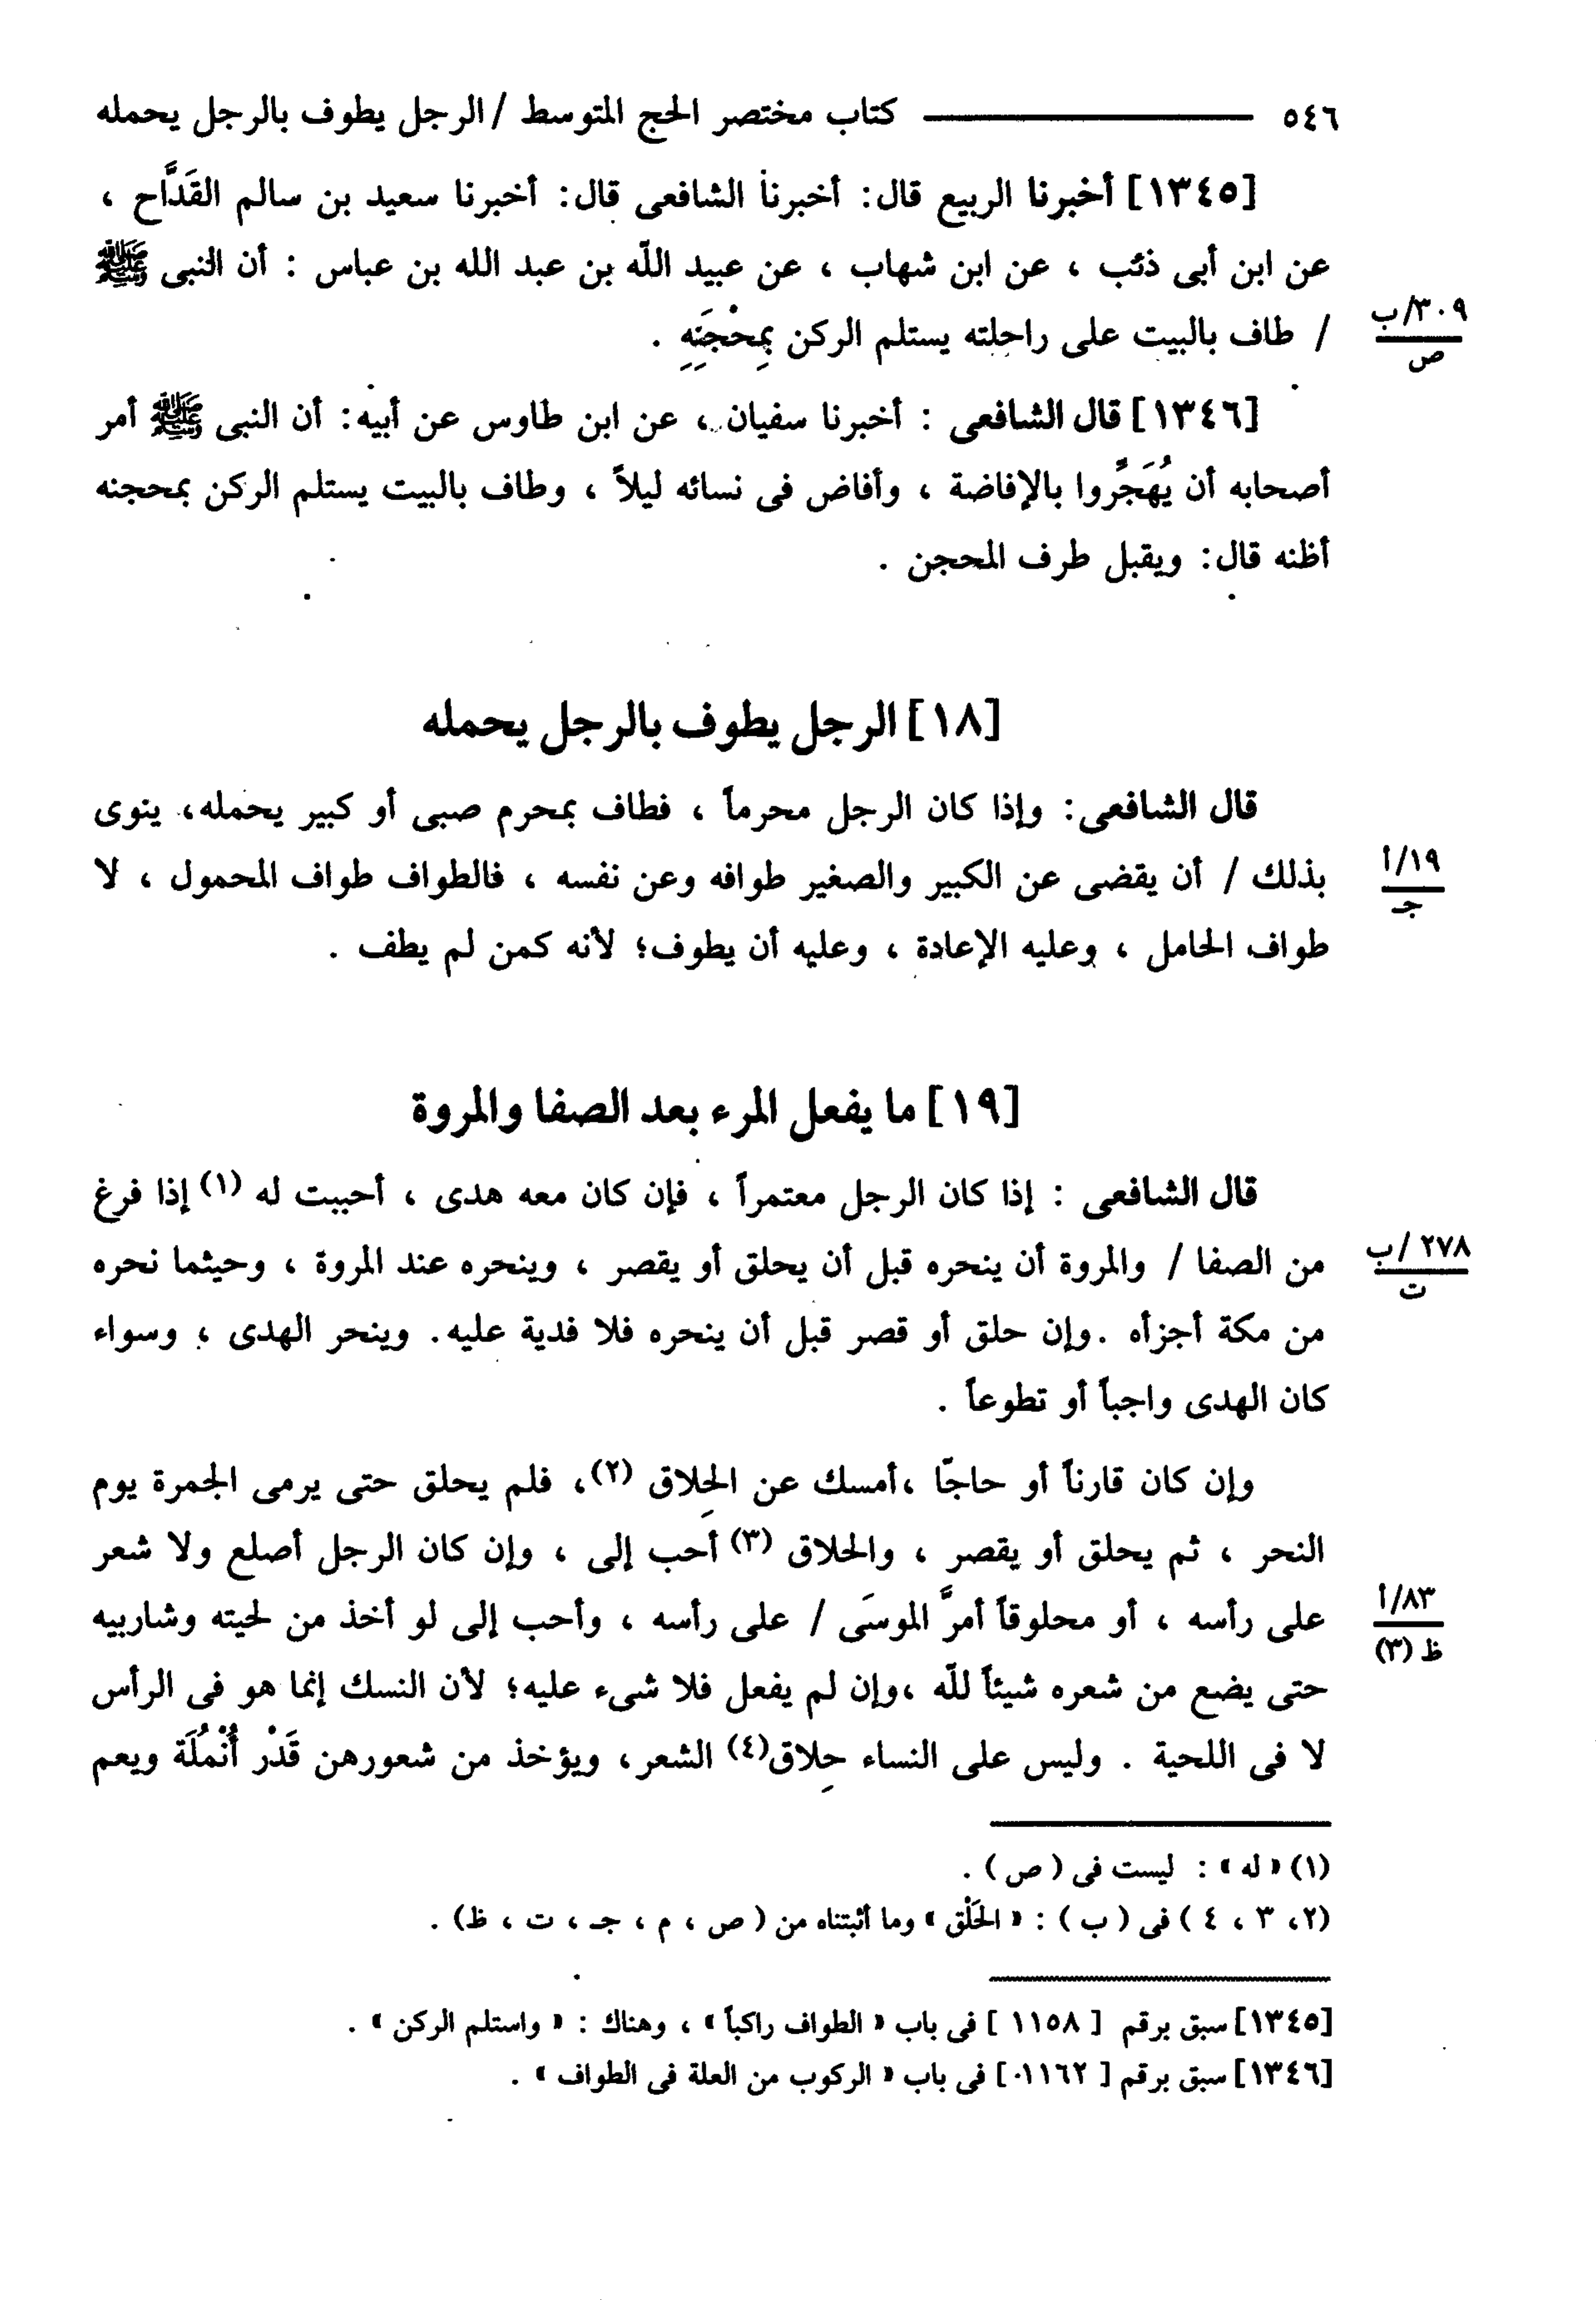 ٥٤٦ ــــــ كتاب مختصر الحج المتوسط / الرجل يطوف بالرجل يحمله
[١٣٤٥] أخبرنا الربيع قال: أخبرنا الشافعى قال: أخبرنا سعيد بن سالم القَدَّاح ،
عن ابن أبى ذئب ، عن ابن شهاب ، عن عبيد اللّه بن عبد الله بن عباس : أن النبى ﷺ
/ طاف بالبيت على راحلته يستلم الركن بِمِحْجَنِهِ .
٣٠٩/ب
ص
[١٣٤٦] قال الشافعى : أخبرنا سفيان ، عن ابن طاوس عن أبيه: أن النبى ﷺ أمر
أصحابه أن يُهَجِّروا بالإفاضة ، وأفاض فى نسائه ليلاً ، وطاف بالبيت يستلم الركن بمحجنه
أظنه قال: ويقبل طرف المحجن .
[١٨] الرجل يطوف بالرجل يحمله
قال الشافعى: وإذا كان الرجل محرماً ، فطاف بمحرم صبى أو كبير يحمله، ينوى
بذلك / أن يقضى عن الكبير والصغير طوافه وعن نفسه ، فالطواف طواف المحمول ، لا
١٩/أ
جـ
طواف الحامل ، وعليه الإعادة ، وعليه أن يطوف؛ لأنه كمن لم يطف .
[١٩] ما يفعل المرء بعد الصفا والمروة
قال الشافعى : إذا كان الرجل معتمراً ، فإن كان معه هدى ، أحببت له (١) إذا فرغ
من الصفا / والمروة أن ينحره قبل أن يحلق أو يقصر ، وينحره عند المروة ، وحيثما نحره
٢٧٨/ب
ت
من مكة أجزأه .وإن حلق أو قصر قبل أن ينحره فلا فدية عليه. وينحر الهدى ، وسواء
كان الهدى واجباً أو تطوعاً .
وإن كان قارناً أو حاجّا ،أمسك عن الحِلاق (٢)، فلم يحلق حتى يرمى الجمرة يوم
النحر ، ثم يحلق أو يقصر ، والحلاق (٣) أحب إلى ، وإن كان الرجل أصلع ولا شعر
على رأسه ، أو محلوقاً أمرَّ الموسَى / على رأسه ، وأحب إلى لو أخذ من لحيته وشاربيه
٨٣/أ
ظ (٣)
حتى يضع من شعره شيئاً للّه ،وإن لم يفعل فلا شىء عليه؛ لأن النسك إنما هو فى الرأس
لا فى اللحية . وليس على النساء حِلاق(٤) الشعر، ويؤخذ من شعورهن قَدْر أُنْمُلَة ويعم
(١) « له » : ليست فى ( ص ) .
(٢، ٣ ، ٤ ) فى ( ب ) : « الحَلْق » وما أثبتناه من ( ص ، م ، جـ ، ت ، ظ) .
[١٣٤٥] سبق برقم [ ١١٥٨ ] فى باب « الطواف راكباً » ، وهناك : « واستلم الركن » .
[١٣٤٦] سبق برقم [ ١١٦٢ ] فى باب « الركوب من العلة فى الطواف » .